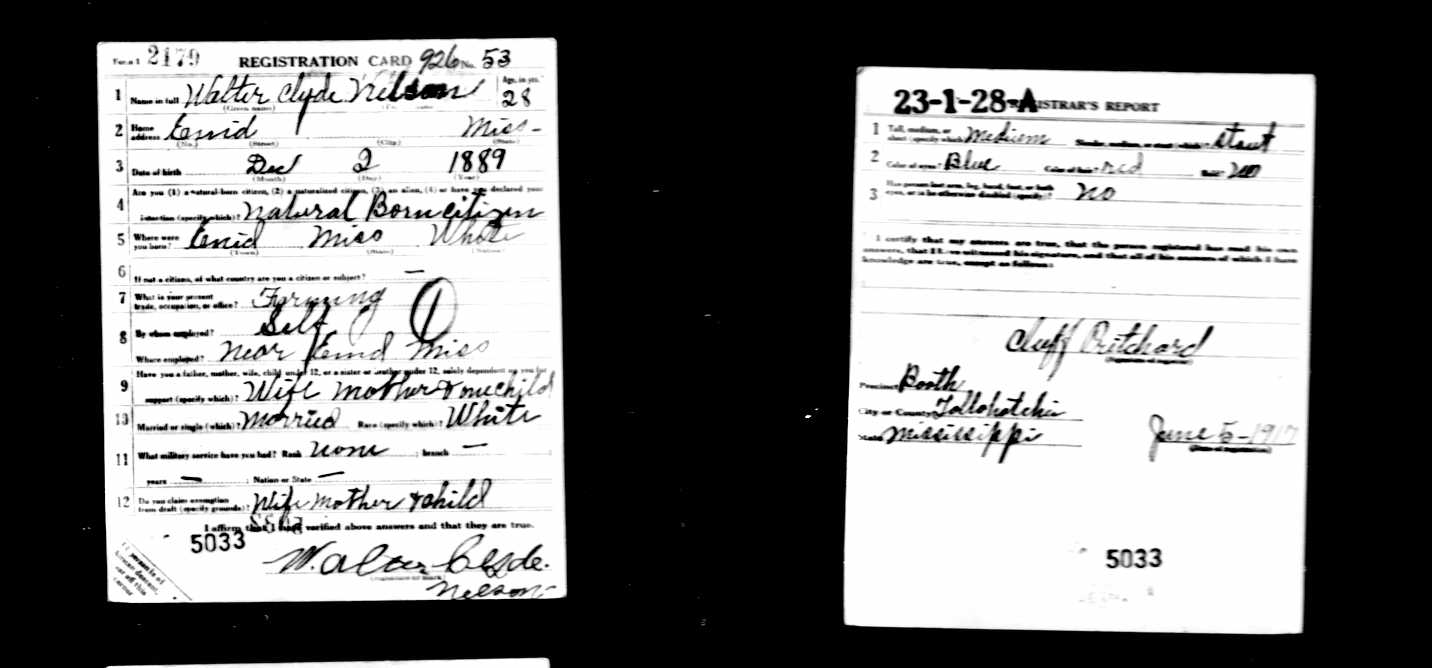 Form 1 2179 REGISTRATION CARD 926 No. 53
1 Name in full Walter Clyde Nelson Age, in yrs. 28
(Given name)
2 Home address Enid Miss-
(No.) (Street) (City) (State)
3 Date of birth Dec 2 1889
(Month) (Day) (Year)
Are you (1) a natural-born citizen, (2) a naturalized citizen, (3) an alien, (4) or have you declared your
4 intention (specify which)? Natural Born citizen
5 Where were you born? Enid Miss
(Town) (State) (Nation)
6 If not a citizen, of what country are you a citizen or subject? —
7 What is your present trade, occupation, or office? Farming
8 By whom employed? Self 1
Where employed? near Enid Miss
Have you a father, mother, wife, child under 12, or a sister or brother under 12, solely dependent on you for
9 support (specify which)? Wife mother & one child
10 Married or single (which)? Married Race (specify which)? White
11 What military service have you had? Rank none ; branch —
years — ; Nation or State —
12 Do you claim exemption from draft (specify grounds)? Wife Mother & child
I affirm that I have verified above answers and that they are true.
5033
Walter Clyde.
(Signature or mark)
Nelson
23-1-28-A REGISTRAR'S REPORT
1 Tall, medium, or short (specify which)? Medium Slender, medium, or stout (which)? stout
2 Color of eyes? Blue Color of hair? red Bald? no
3 Has person lost arm, leg, hand, foot, or both eyes, or is he otherwise disabled (specify)? no
I certify that my answers are true, that the person registered has read his own
answers, that I have witnessed his signature, and that all of his answers of which I have
knowledge are true, except as follows:
Cluff Pritchard
(Signature of registrar)
Precinct Booth
City or County Tallahatchie
State Mississippi June 5-1917
(Date of registration)
5033